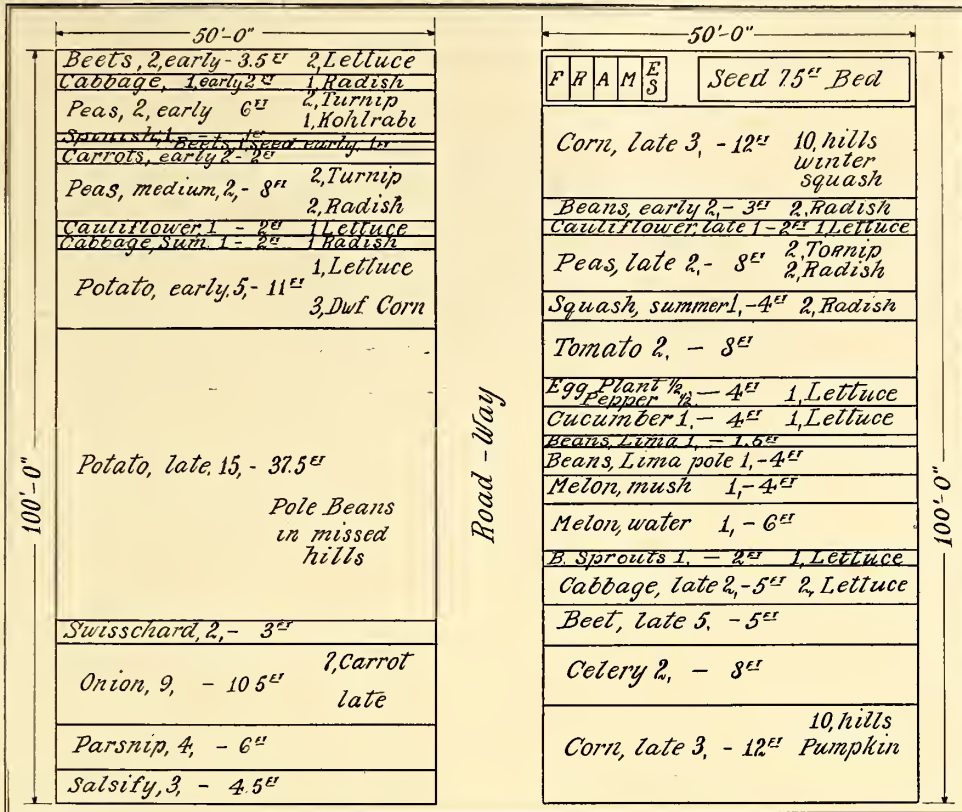 50'-0"
Beets, 2, early - 3.5 FT 2, Lettuce
Cabbage, 1, early 2 FT 1, Radish
Peas, 2, early 6 FT 2, Turnip
1, Kohlrabi
Spinish, 1, - 1 FT
Beets, 1, seed early, 1 FT
Carrots, early 2 - 2 FT
Peas, medium, 2, - 8 FT 2, Turnip
2, Radish
Cauliflower, 1 - 2 FT 1 Lettuce
Cabbage, Sum. 1 - 2 FT 1 Radish
Potato, early, 5, - 11 FT 1, Lettuce
3, Dwf Corn
Potato, late, 15, - 37.5 FT
Pole Beans
in missed
hills
Swisschard, 2, - 3 FT
Onion, 9, - 10 5 FT 7, Carrot
late
Parsnip, 4, - 6 FT
Salsify, 3, - 4.5 FT
100'-0"
Road-Way
50'-0"
FRAMES
Seed 7.5 FT Bed
Corn, late 3, - 12 FT 10, hills
winter
squash
Beans, early 2, - 3 FT 2, Radish
Cauliflower, late 1 - 2 FT 1, Lettuce
Peas, late 2, - 8 FT 2, Tornip
2, Radish
Squash, summer 1, - 4 FT 2, Radish
Tomato 2, - 8 FT
Egg Plant 1/2, - 4 FT 1, Lettuce
Pepper 1/2
Cucumber 1, - 4 FT 1, Lettuce
Beans, Lima 1, - 1.5 FT
Beans, Lima pole 1, - 4 FT
Melon, mush 1, - 4 FT
Melon, water 1, - 6 FT
B. Sprouts 1, - 2 FT 1, Lettuce
Cabbage, late 2, - 5 FT 2, Lettuce
Beet, late 5, - 5 FT
Celery 2, - 8 FT
Corn, late 3, - 12 FT 10, hills
Pumpkin
100'-0"